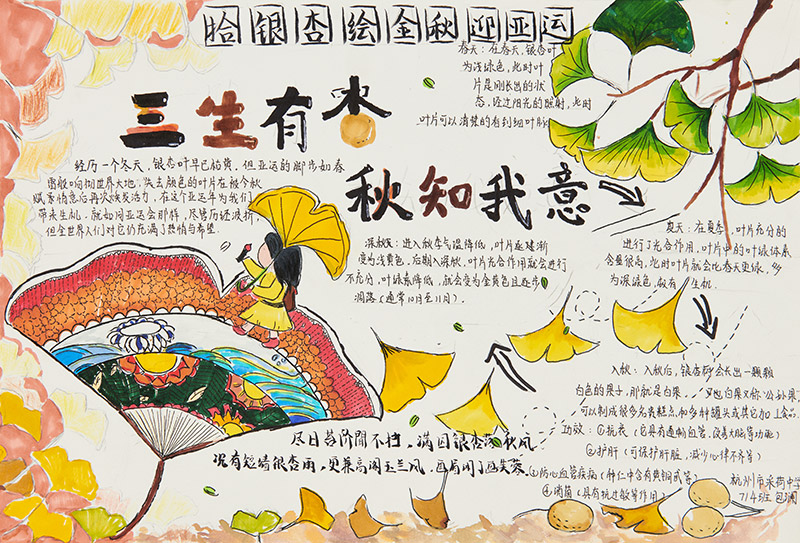 拾银杏绘金秋迎亚运
三生有杏
秋知我意
春天：在春天，银杏叶
为浅绿色，此时叶
片是刚长出的状
态，经过阳光的照射，此时
叶片可以清楚的看到细叶脉
经历一个冬天，银杏叶早已枯黄，但亚运的脚步如春
再次焕发活力，在这个亚运年为我们
带来生机。就如同亚运会那样，尽管历经波折，
但全世界人们对它仍充满了热情与希望。
深秋：进入秋季气温降低，叶片在逐渐
变为浅黄色，后期入深秋，叶片光合作用就会进行
不充分，叶绿素降低，就会变为金黄色且逐步
凋落（通常10月至11月）.
夏天：在夏季，叶片充分的
进行了光合作用，叶片中的叶绿体素
含量很高，此时叶片就会比春天更绿，多
为深绿色，富有生机.
入秋：入秋后，银杏所会长出一颗颗
白色的果子，那就是白果，又地白果又称"公孙果"
可以制成很多元素糕点，如多种罐头或其它加工食品.
功效：①抗衰（它具有通畅血管，改善大脑等功能）
②护肝（可保护肝脏，减少心律不齐等）
③防心血管疾病（种仁中含有黄铜甙等）
④消菌（具有抗过敏等作用）
尽日苔阶闲不扫，满园银杏落秋风
满有短墙银杏雨，更兼高阁玉兰风，画眉闲了画芙蓉.
杭州市采荷中学
714班